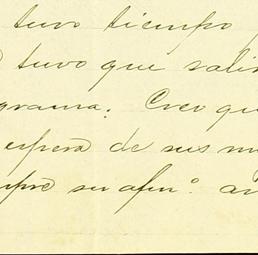 tuvo tiempo
tuvo que salir
grama. Creo qu
espera de sus m
mpre su afmº. am